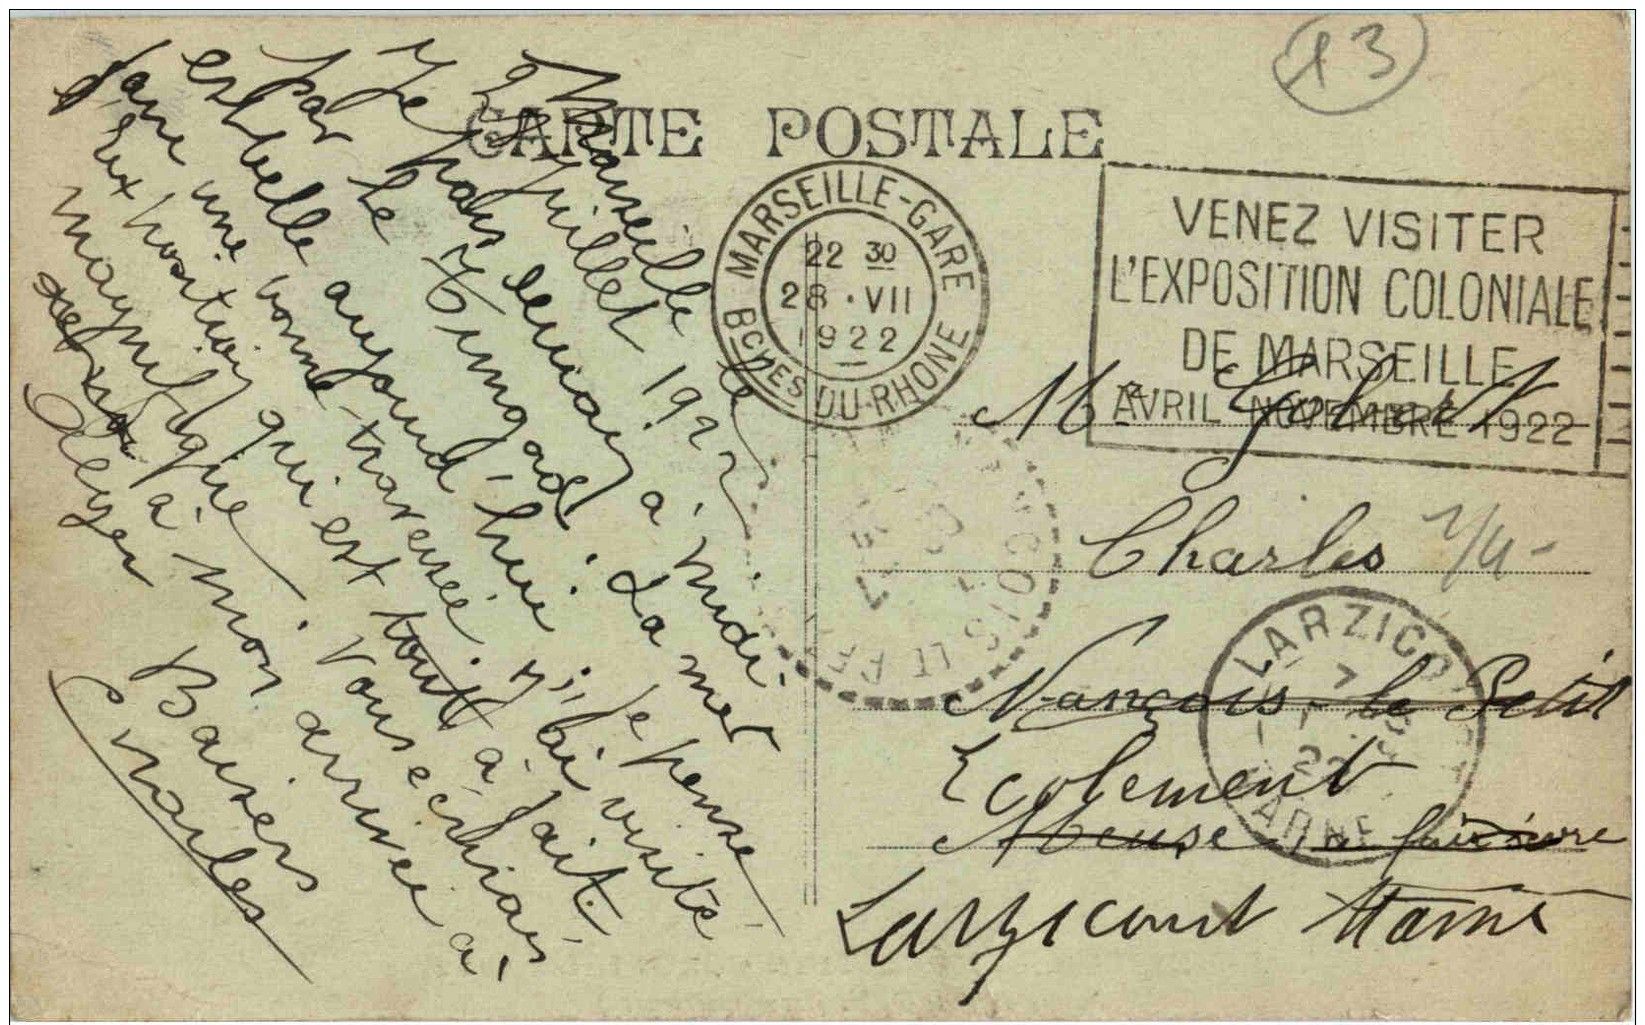 13
CARTE POSTALE
MARSEILLE-GARE
22 30
28 · VII
1922
BCHES DU-RHONE
VENEZ VISITER
L'EXPOSITION COLONIALE
DE MARSEILLE
AVRIL NOVEMBRE 1922
Marseille le
28 Juillet 1922
Je pars demain à midi
par le Timgad. La mer
est belle aujourd'hui, je pense
faire une bonne traversée. J'ai visité
l'exposition qui est tout à fait
magnifique. Vous écrirai
à mon arrivée à
Alger
Baisers
Charles
Mr
Charles
Nançois-le Petit
Ecolement
Meuse faire suivre
Larzicourt Marne
LARZICOURT
MARNE